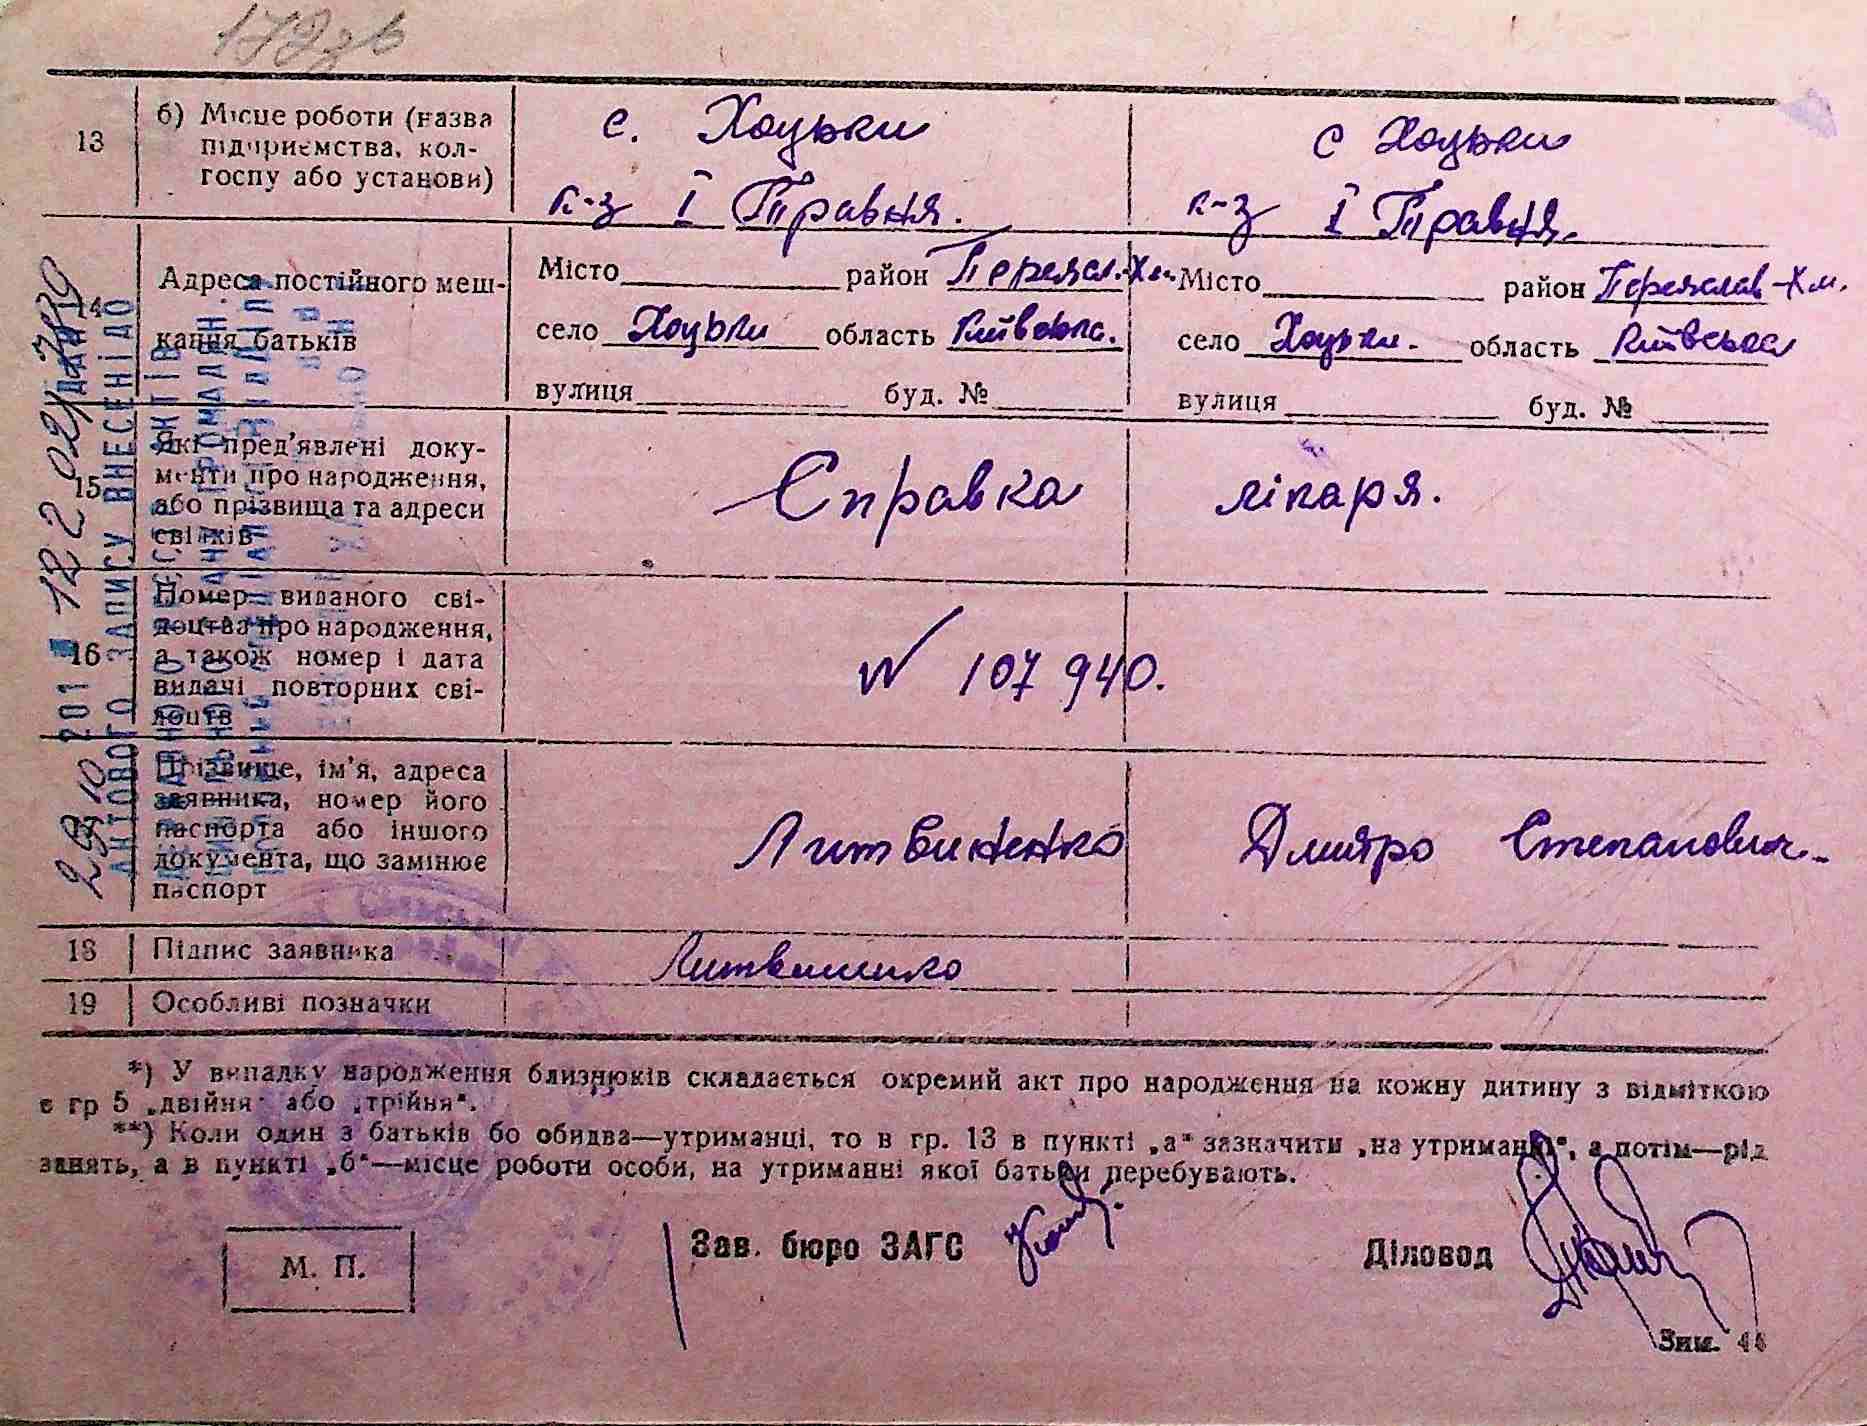 172зв
13
б) Місце роботи (назва
підприємства, кол-
госпу або установи)
с. Хоцьки
к-з І Травня.
с Хоцьки
к-з І Травня.
14
Адреса постійного меш-
кання батьків
Місто район Переясл.-Хм.
село Хоцьки область Київська.
вулиця буд. №
Місто район Переяслав-Хм.
село Хоцьки. область Київська
вулиця буд. №
15
Які пред'явлені доку-
менти про народження,
або прізвища та адреси
свідків
Справка лікаря.
16
Номер виданого сві-
доцтва про народження,
а також номер і дата
видачі повторних сві-
доцтв
№ 107940.
Прізвище, ім'я, адреса
заявника, номер його
паспорта або іншого
документа, що замінює
паспорт
Литвиненко Дмитро Степанович
18
Підпис заявника
Литвиненко
19
Особливі позначки
*) У випадку народження близнюків складається окремий акт про народження на кожну дитину з відміткою
в гр 5 „двійня" або „трійня".
**) Коли один з батьків бо обидва—утриманці, то в гр. 13 в пункті „а" зазначити „на утриманні", а потім—рід
занять, а в пункті „б"—місце роботи особи, на утриманні якої батьки перебувають.
М. П.
Зав. бюро ЗАГС
Діловод
Зим. 44
АКТОВОГО ЗАПИСУ ВНЕСЕНІ ДО
ГРОМАДЯН